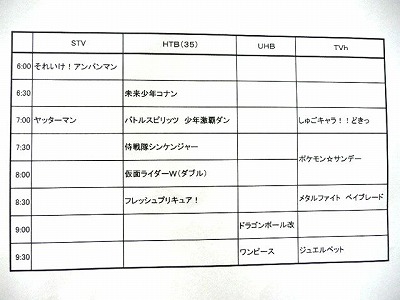 STV HTB(35) UHB TVh
6:00 それいけ！アンパンマン
6:30 未来少年コナン
7:00 ヤッターマン バトルスピリッツ 少年激覇ダン しゅごキャラ！！どきっ
7:30 侍戦隊シンケンジャー
ポケモン☆サンデー
8:00 仮面ライダーW(ダブル)
8:30 フレッシュプリキュア！ メタルファイト ベイブレード
9:00 ドラゴンボール改
9:30 ワンピース ジュエルペット